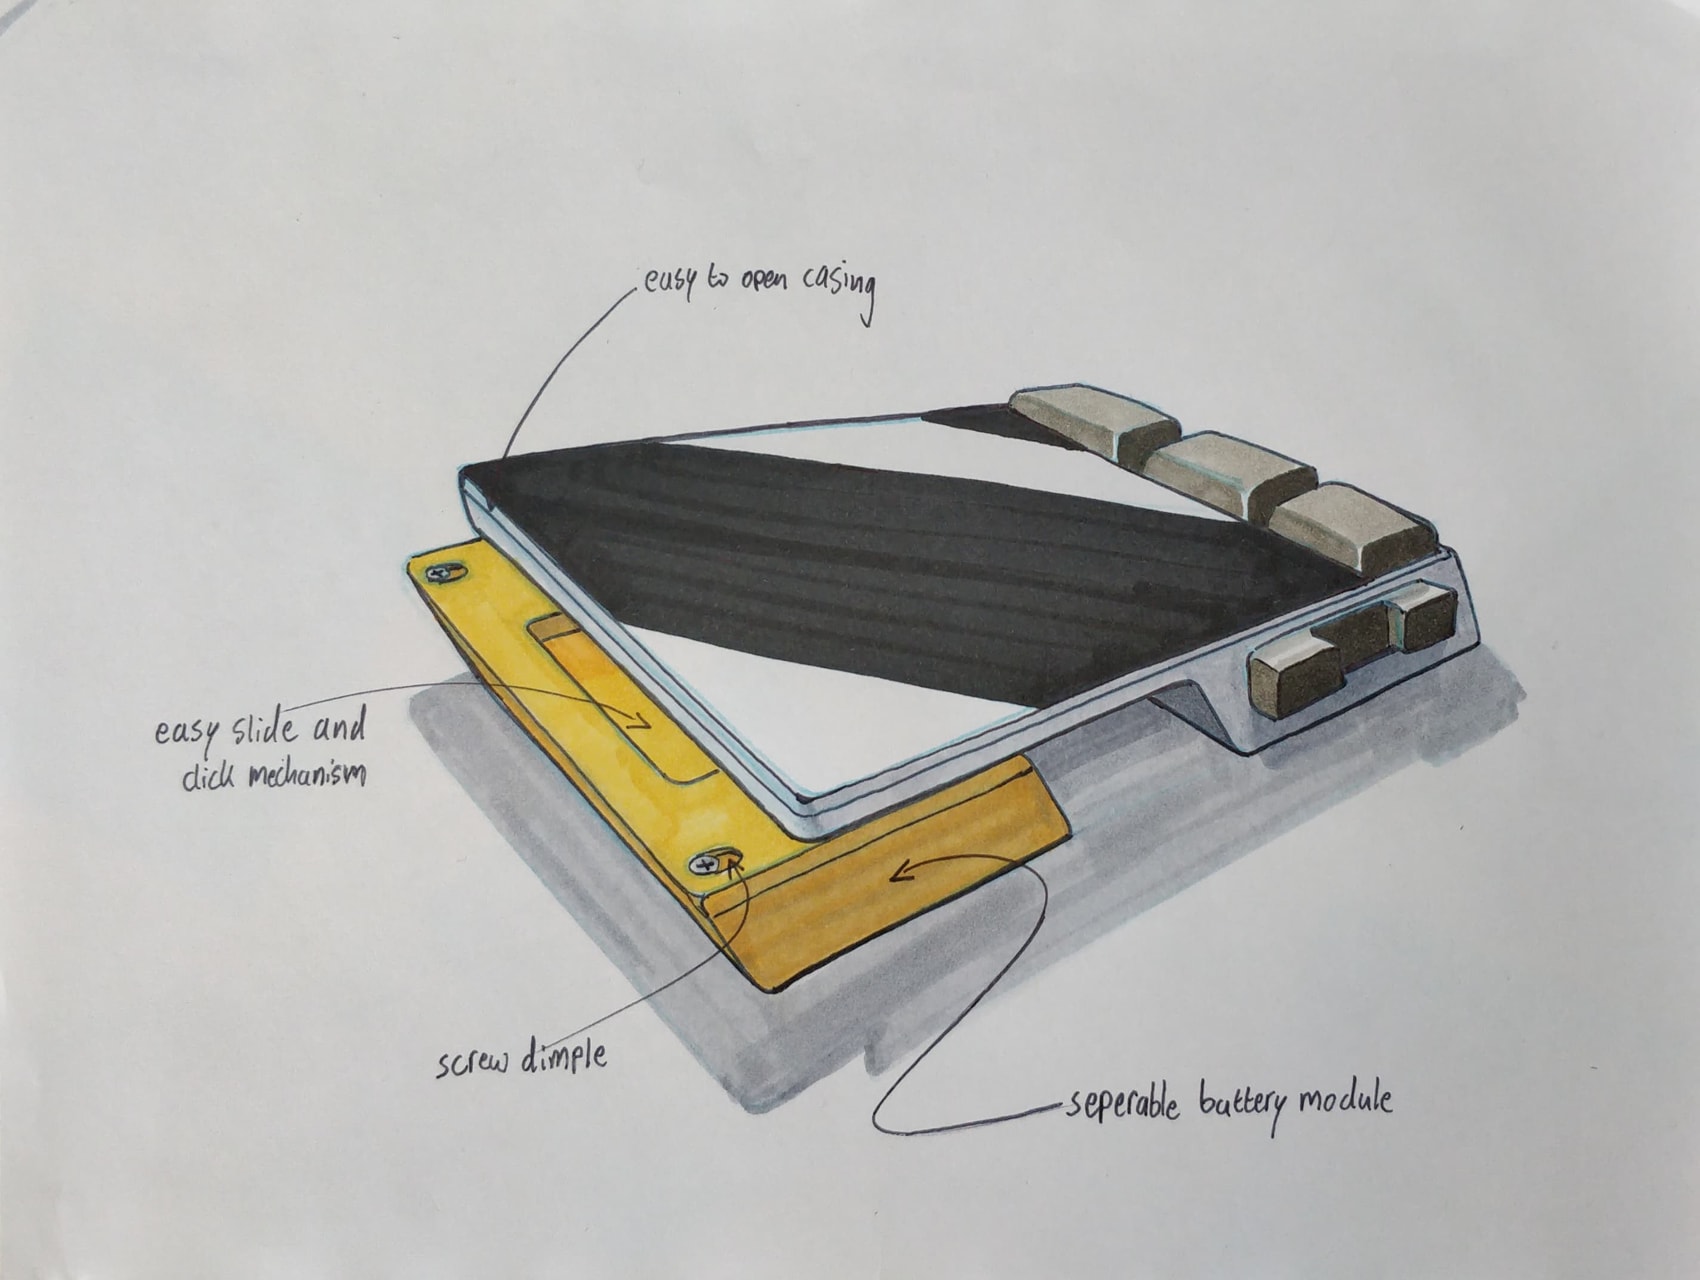 easy to open casing
easy slide and
click mechanism
screw dimple
seperable battery module